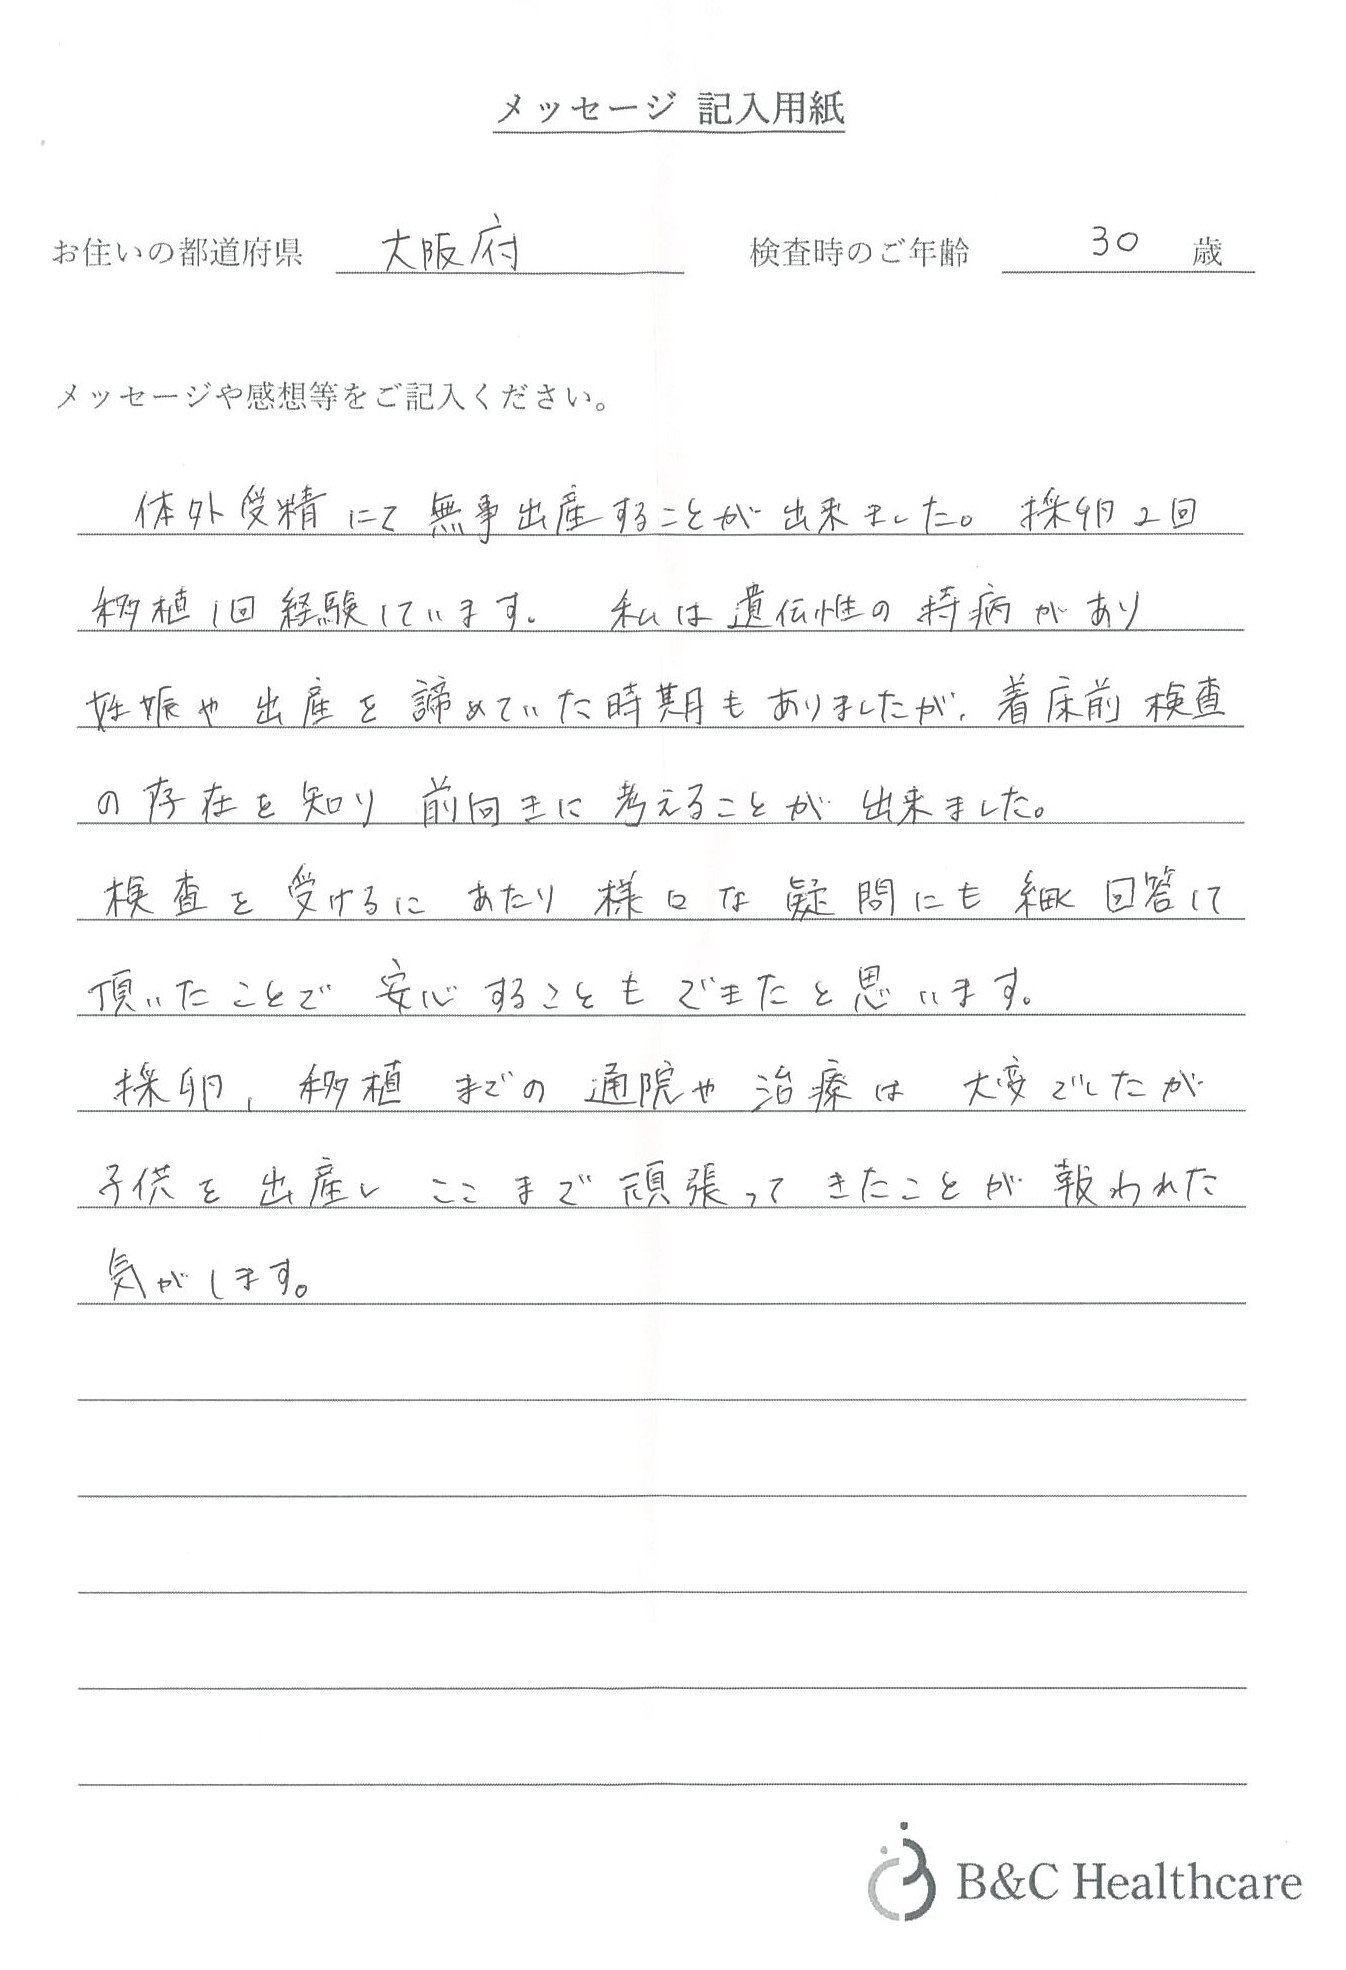 メッセージ 記入用紙
お住いの都道府県 大阪府 検査時のご年齢 30 歳
メッセージや感想等をご記入ください。
体外受精にて無事出産することが出来ました。採卵2回
移植1回経験しています。私は遺伝性の持病があり
妊娠や出産を諦めていた時期もありましたが、着床前検査
の存在を知り前向きに考えることが出来ました。
検査を受けるにあたり様々な疑問にも細く回答して
頂いたことで安心することもできたと思います。
採卵、移植までの通院や治療は大変でしたが
子供を出産しここまで頑張ってきたことが報われた
気がします。
B&C Healthcare